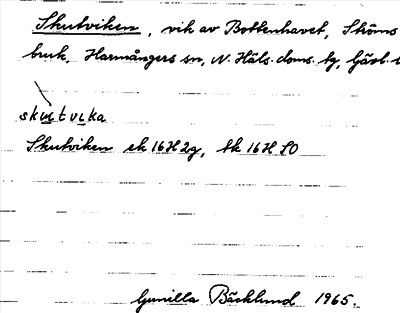 Skutviken, vik av Bottenhavet, Ströms
bruk, Harmångers sn, N. Häls. doms. tg, Gävl.
skutvika
Skutviken ek 16H 2g, tk 16H SO
Gunilla Bäcklund 1965.